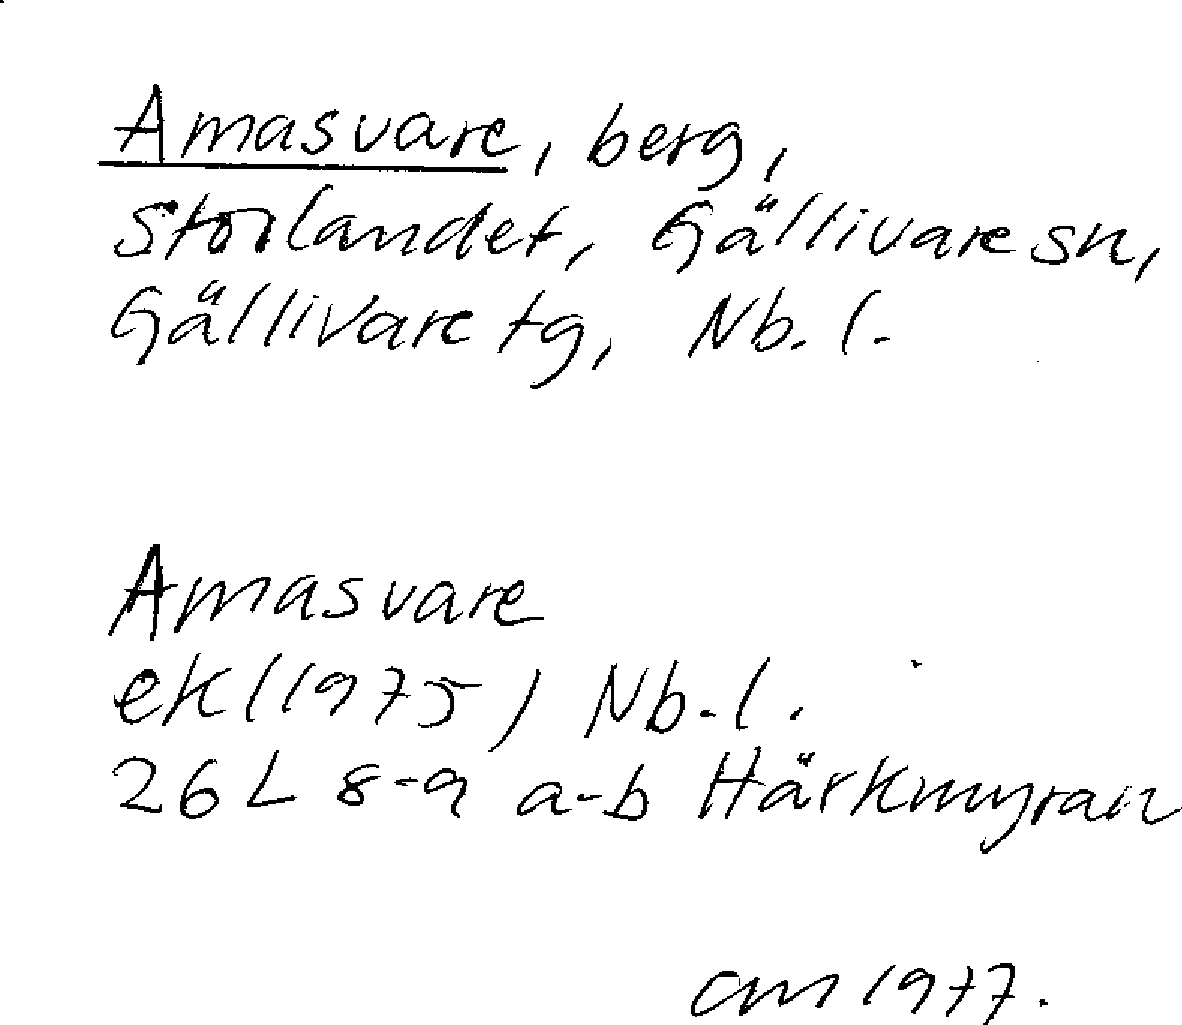 Amasvare, berg,
Storlandet, Gällivare sn,
Gällivare tg, Nb. l.
Amasvare
ek (1975) Nb. l.
26 L 8-9 a-b Härkmyran
am 1977.